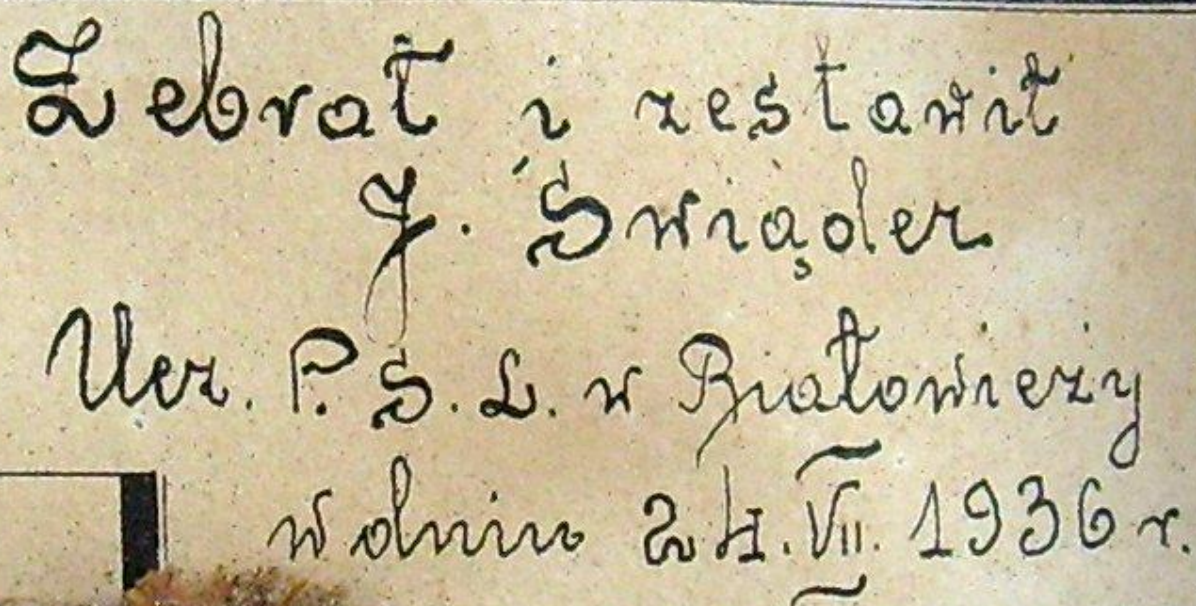 Zebrał i zestawił
J. Świąder.
Ucz. P. S. L. w Białowieży
w dniu 24. VII. 1936 r.